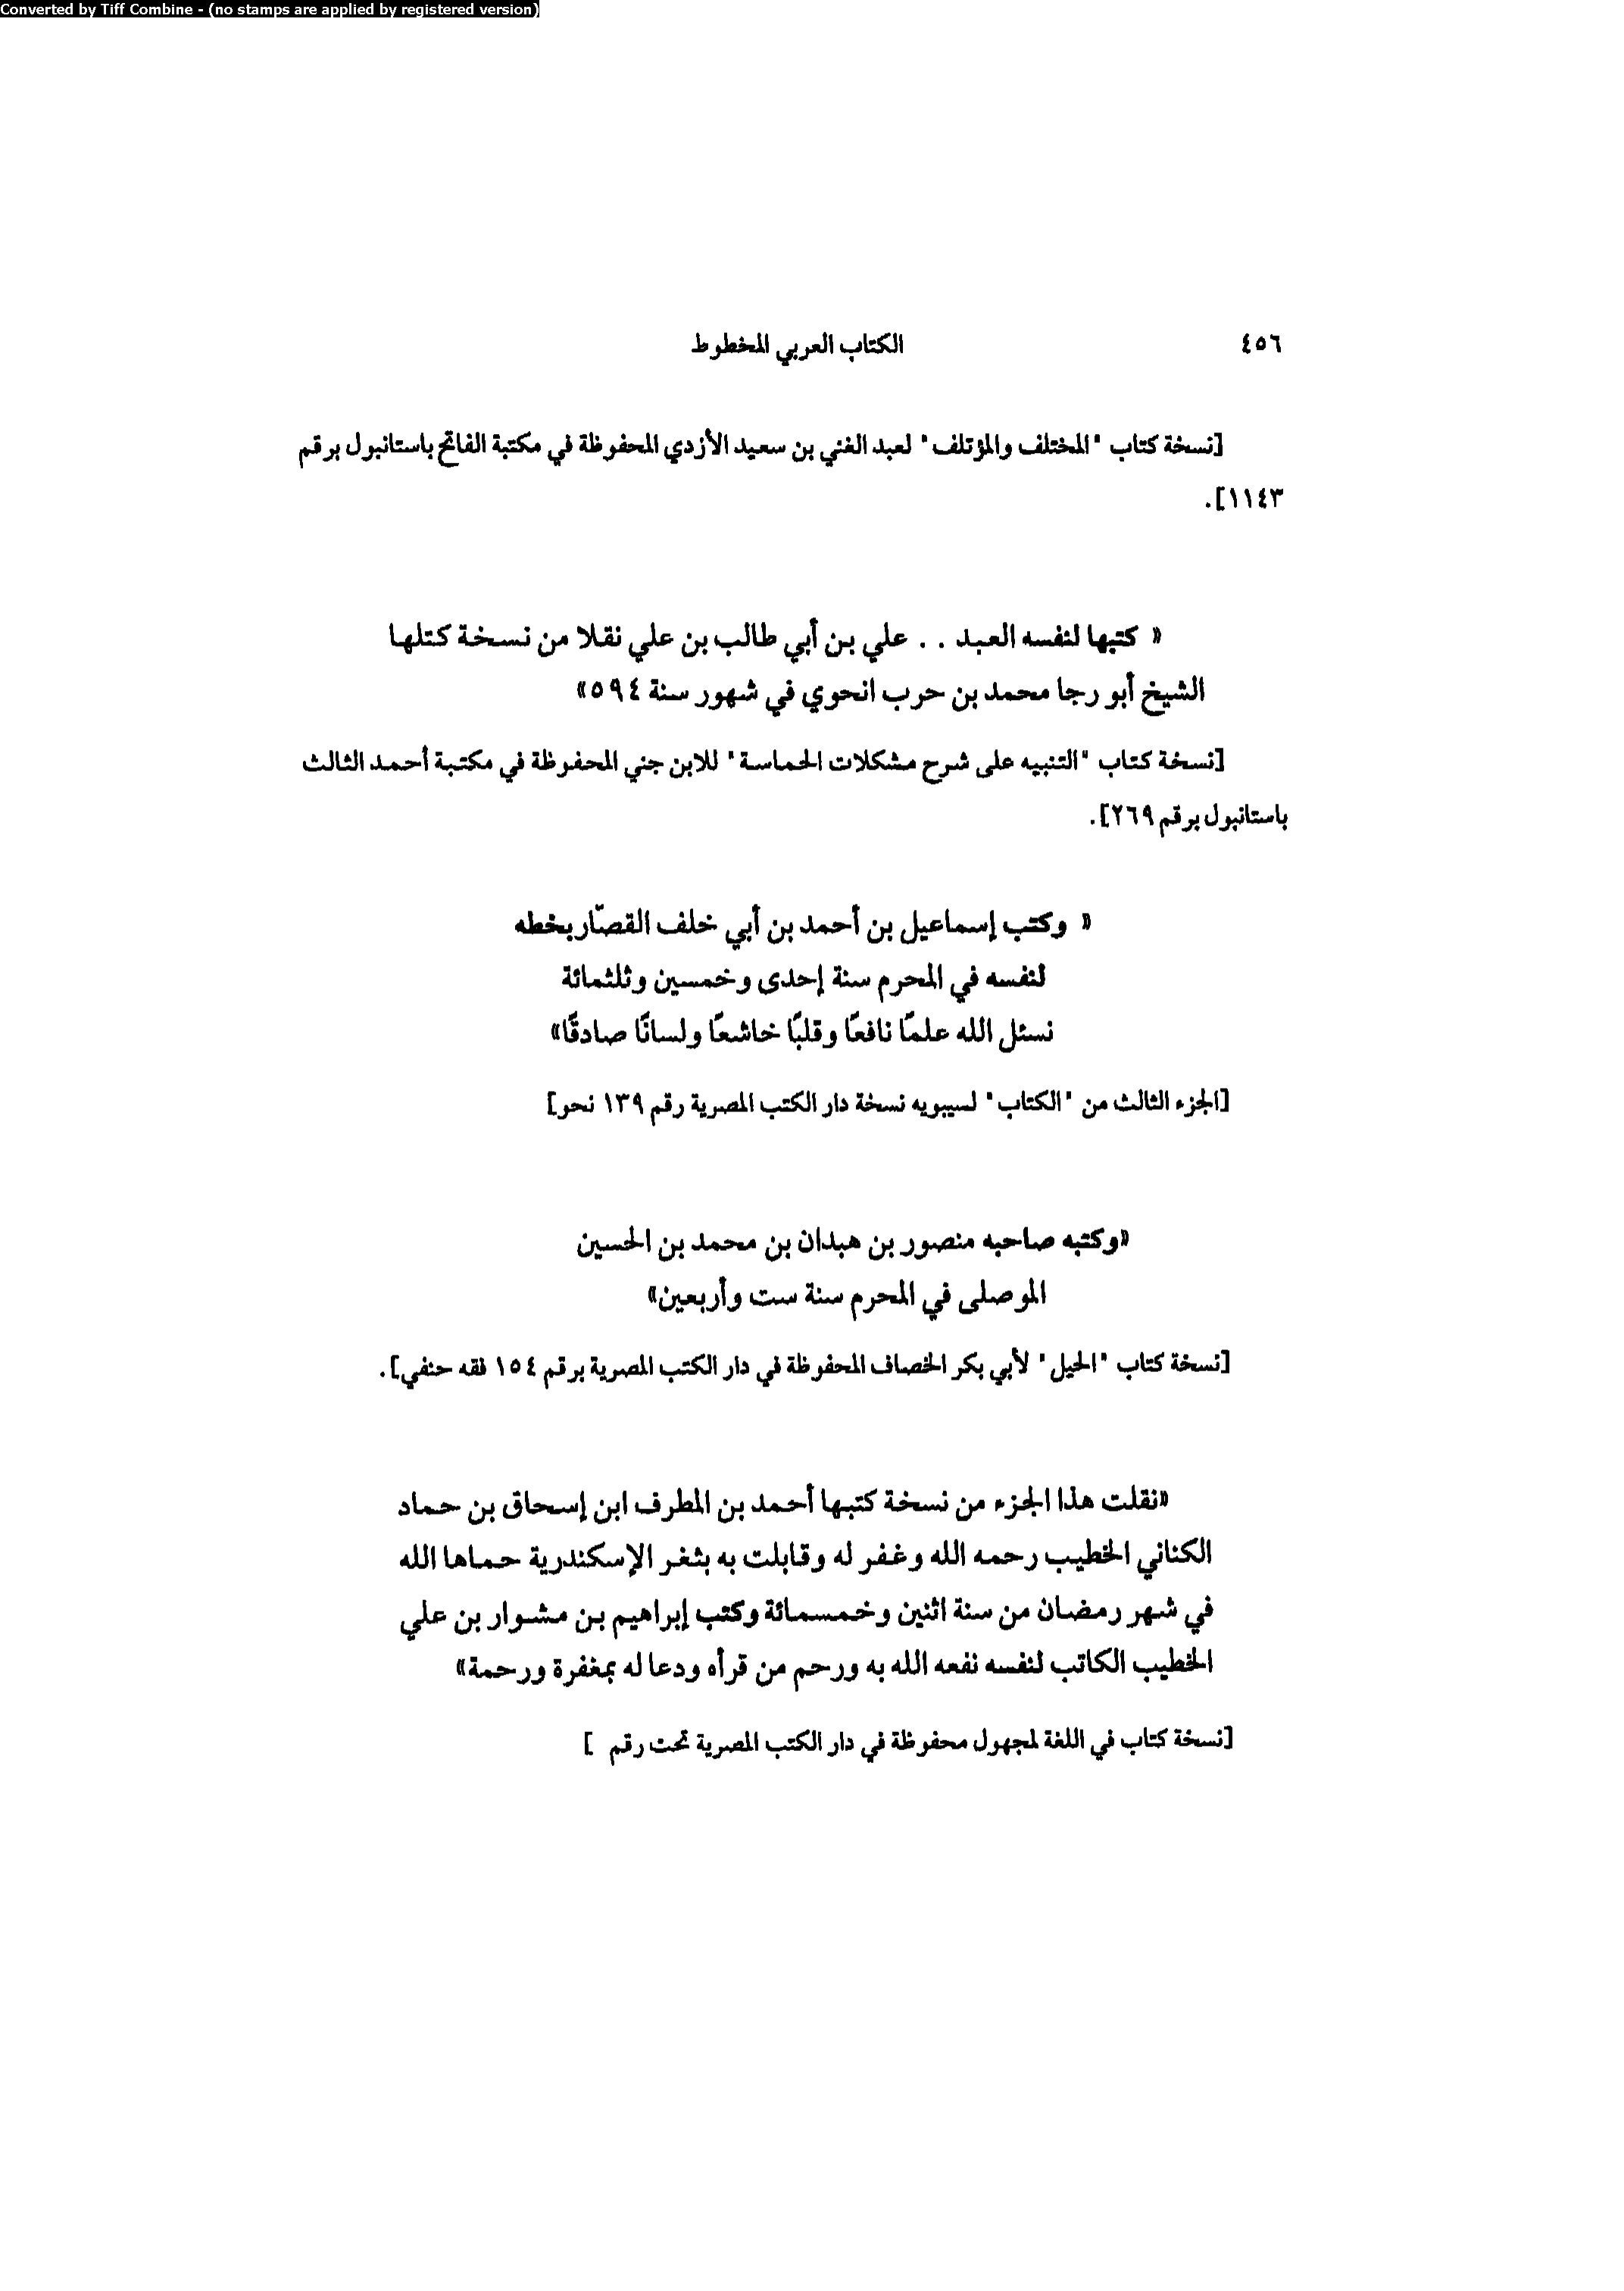 Converted by Tiff Combine - (no stamps are applied by registered version)
٤٥٦ الكتاب العربي المخطوط
[نسخة كتاب "المختلف والمؤتلف" لعبد الغني بن سعيد الأزدي المحفوظة في مكتبة الفاتح باستانبول برقم
١١٤٣].
« كتبها لنفسه العبد . . علي بن أبي طالب بن علي نقلا من نسخة كتلها
الشيخ أبو رجا محمد بن حرب انحوي في شهور سنة ٥٩٤»
[نسخة كتاب "التنبيه على شرح مشكلات الحماسة" للابن جني المحفوظة في مكتبة أحمد الثالث
باستانبول برقم ٢٦٩].
« وكتب إسماعيل بن أحمد بن أبي خلف القصّار بخطه
لنفسه في المحرم سنة إحدى وخمسين وثلثمائة
نسئل الله علمًا نافعًا وقلبًا خاشعًا ولسانًا صادقًا»
[الجزء الثالث من "الكتاب" لسيبويه نسخة دار الكتب المصرية رقم ١٣٩ نحو]
«وكتبه صاحبه منصور بن هبدان بن محمد بن الحسين
الموصلى في المحرم سنة ست وأربعين»
[نسخة كتاب "الحيل" لأبي بكر الخصاف المحفوظة في دار الكتب المصرية برقم ١٥٤ فقه حنفي].
«نقلت هذا الجزء من نسخة كتبها أحمد بن المطرف ابن إسحاق بن حماد
الكناني الخطيب رحمه الله وغفر له وقابلت به بثغر الإسكندرية حماها الله
في شهر رمضان من سنة اثنين وخمسمائة وكتب إبراهيم بن مشوار بن علي
الخطيب الكاتب لنفسه نفعه الله به ورحم من قرأه ودعا له بمغفرة ورحمة»
[نسخة كتاب في اللغة لمجهول محفوظة في دار الكتب المصرية تحت رقم ]